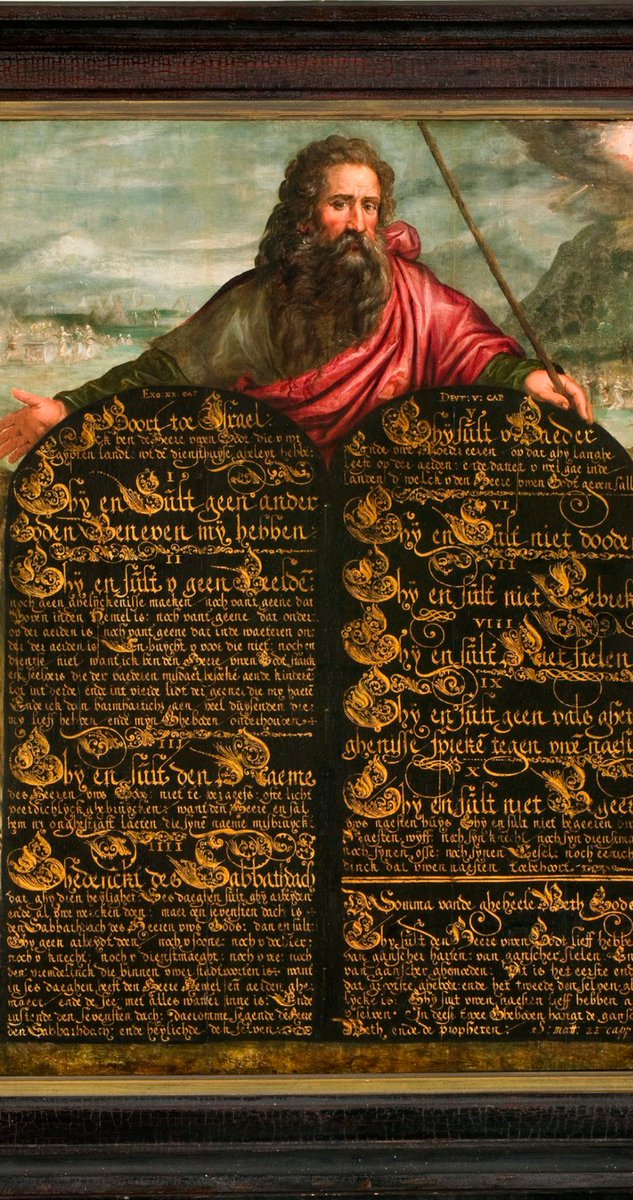 Exo: xx: cap
Hoort toe Israel.
Ick ben de Heere uwen Godt die u wt
Egypten landt: wt de diensthuyse geleyt hebbe
I
Ghy en Sult geen ander
Goden Beneven my hebben.
II
Ghy en sult u geen Beelden
noch geen ghelyckenisse maecken noch vant geene dat
Boven inden Hemel is: noch vant geene dat onder
op der aerden is noch vant geene dat inde waeteren on
der der aerden is En buycht u voor die niet, noch en
dienne niet want ick ben den Heere uwen Godt
der vaederen misdaet
int derde ende int vierde lidt der geene die my
Ende ick doen barmharticheyt veel duysenden die
my lief hebben ende myn Gheboden onderhouwen
III
Ghy en sult den Naeme
des Heeren uws Gods niet te oft licht
veerdichlyck ghebruycken: want den Heere en sal
hem niet ongestraft laeten die syne naeme misbruyckt
IIII
Ghedenckt des Sabbathdach
dat ghy dien heylighet Ses daeghen sult ghy arbeyden
ende al uwe wercken doen: maer den sevensten dach is
een Sabbathdach des Heeren uws Gods: dan en sult
Ghy geen arbeydt doen noch u soone: noch u dochter:
noch u knecht, noch u dienstmaeght: noch u vee: noch
den vremdelinck die binnen uwer stadt is: want
in ses daeghen heeft den Heere Hemel en aerden ghe
maeckt ende de see met alles watter inne is: Ende
ruste den sevensten dach: Daeromme segende de Heere
den Sabbathdach: ende heylichde den selven
Deut: v: cap
V
Ghy sult u Vaeder
Ende uwe Moeder eeren op dat ghy langhe
leeft op der aerden: ende dattet u wel gae inde
landen d welck u den Heere uwen Godt geven sal
VI
Ghy en Sult niet dooden
VII
Ghy en sult niet Gebreke
VIII
Ghy en sult Niet stelen
IX
Ghy en sult geen vals ghet
ghenisse spreken tegen uwe naest
X
Ghy en sult niet Begeer
uws naesten huys Ghy en sult niet begeeren
Naesten wyff noch syn knecht noch syn dienstma
noch synen osse: noch synen Eesel: noch
dat uwen naesten toebehoort
De Somma vande gheheele Weth Gode
Ghy sult den Heere uwen Godt lieff hebbe
van ganscher harten van ganscher sielen En
van ganscher ghemoeden: Dit is het eerste end
dat grootste ghebodt: ende het tweede den selven
lyck is: Ghy sult uwen naesten lieff hebben a
selven: In deese twee Gheboden hangt de gansch
Weth, ende de propheten: S: matt: 22 cap